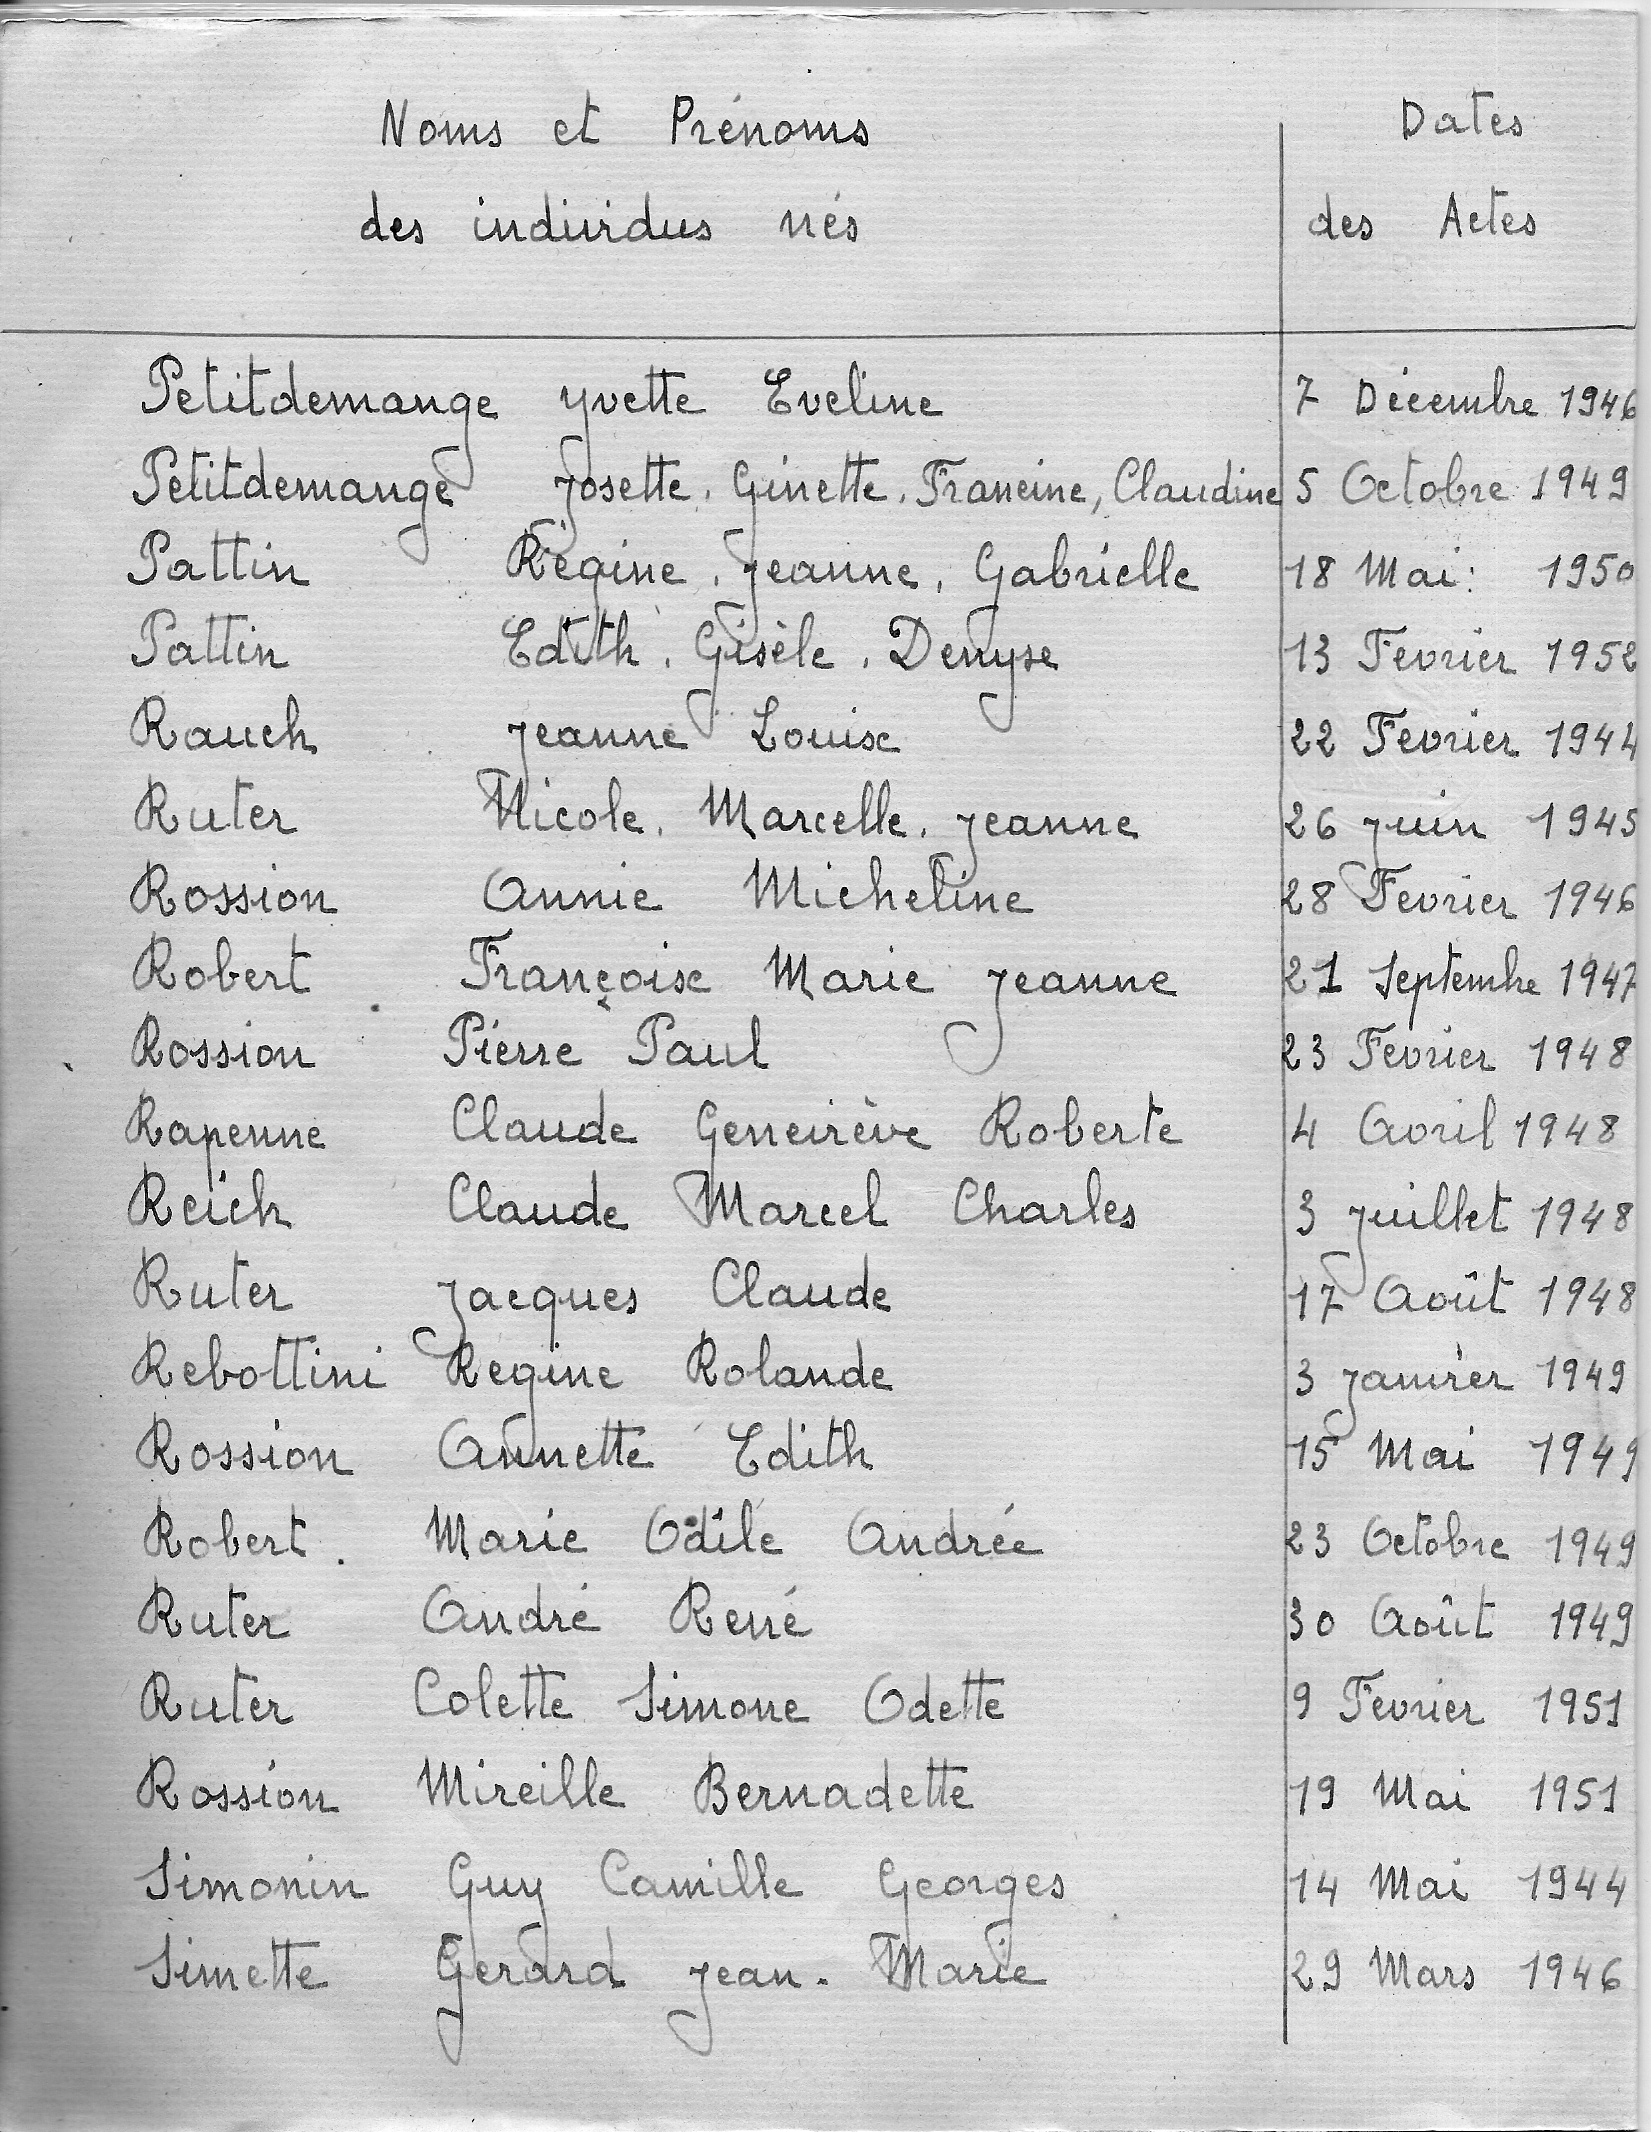 Noms et Prénoms Dates
des individus nés des Actes
Petitdemange yvette Eveline 7 Décembre 1946
Petitdemange Josette, Ginette, Francine, Claudine 5 Octobre 1949
Pattin Régine, Jeanne, Gabrielle 18 Mai: 1950
Pattin Edith, Gisèle, Denyse 13 Fevrier 1952
Rauch Jeanne Louise 22 Fevrier 1944
Ruter Nicole, Marcelle, Jeanne 26 Juin 1945
Rossion Annie Micheline 28 Fevrier 1946
Robert Françoise Marie Jeanne 21 Septembre 1947
Rossion Pierre Paul 23 Fevrier 1948
Rapenne Claude Geneviève Roberte 4 Avril 1948
Reich Claude Marcel Charles 3 Juillet 1948
Ruter Jacques Claude 17 Août 1948
Rebottini Regine Rolande 3 Janvier 1949
Rossion Annette Edith 15 Mai 1949
Robert. Marie Odile Andrée 23 Octobre 1949
Ruter André René 30 Août 1949
Ruter Colette Simone Odette 9 Fevrier 1951
Rossion Mireille Bernadette 19 Mai 1951
Simonin Guy Camille Georges 14 Mai 1944
Simette Gerard Jean-Marie 29 Mars 1946